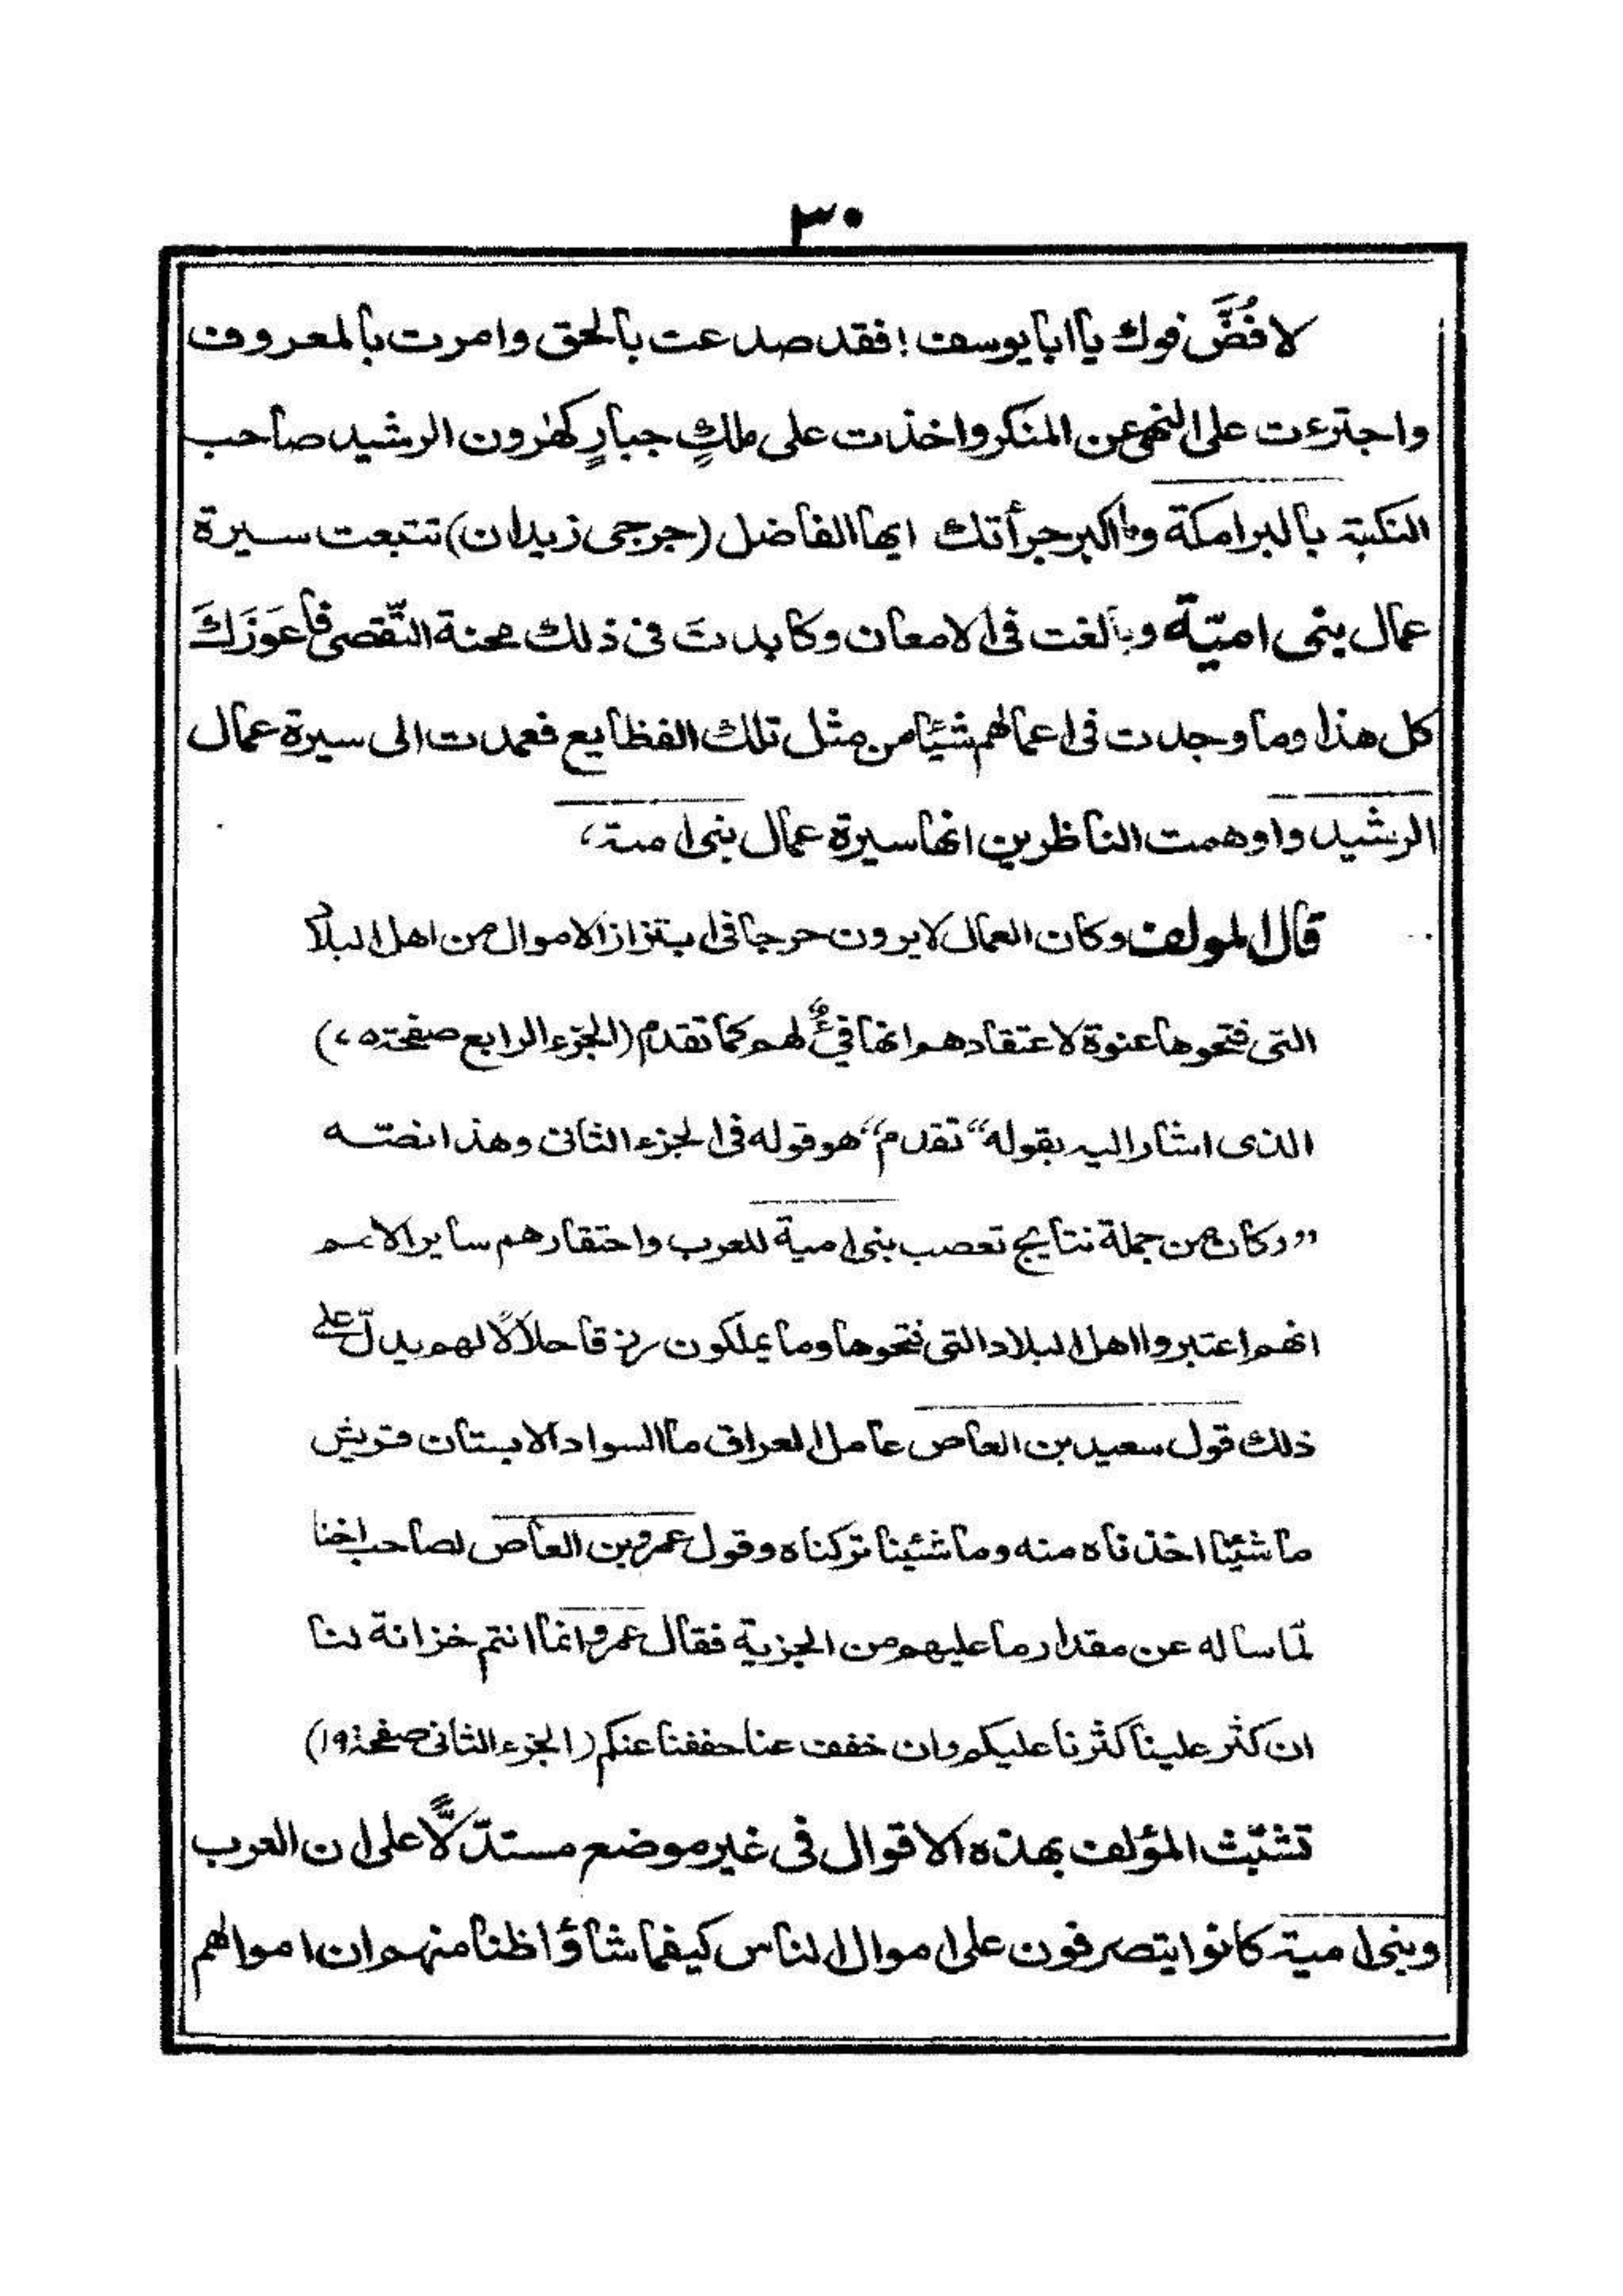 ٣٠
لا فُضَّ فوك يا ابا يوسف! فقد صدعت بالحق وامرت بالمعروف
واجترءت على النهى عن المنكر واخذت على ملكٍ جبارٍ كهٰرون الرشيد صاحب
النكبة بالبرامكة وما اكبر جرأتك ايها الفاضل (جرجى زيدان) تتبعت سيرة
عمال بنى اميّة وبالغت فى الامعان وكابدتَ فى ذلك محنة التّقصى فاَعوَزَكَ
كل هذا وما وجدت فى اعمالهم شيئا من مثل تلك الفظايع فعمدت الى سيرة عمال
الرشيد واوهمت الناظرين انها سيرة عمال بنى امية،
قال المولف وكان العمال لا يرون حرجا فى ابتزاز الاموال من اهل البلاد
التى فتحوها عنوة لاعتقادهم انها فيئٌ لهم كما تقدم (الجزء الرابع صفحة
الذى اشار اليه بقوله "تقدم" هو قوله فى الجزء الثانى وهذا نصّه
"وكان من جملة نتايج تعصب بنى امية للعرب واحتقارهم ساير الامم
انهم اعتبروا اهل البلاد التى فتحوها وما يملكون رزقا حلالًا لهم يدلّ على
ذلك قول سعيد بن العاص عامل العراق ما السواد الا بستان قريش
ما شئنا اخذناه منه وما شئينا تركناه وقول عمرو بن العاص لصاحب اخنا
لمّا ساله عن مقدار ما عليهم من الجزية فقال عمرو انما انتم خزانة لنا
ان كثر علينا كثرنا عليكم وان خفف عنا خففنا عنكم (الجزء الثانى صفحة ١٩)
تشبّث المؤلف بهذه الاقوال فى غير موضع مستدّلًّا على ان العرب
وبنى امية كانوا يتصرفون على اموال الناس كيفما شاؤا ظنا منهم ان اموالهم